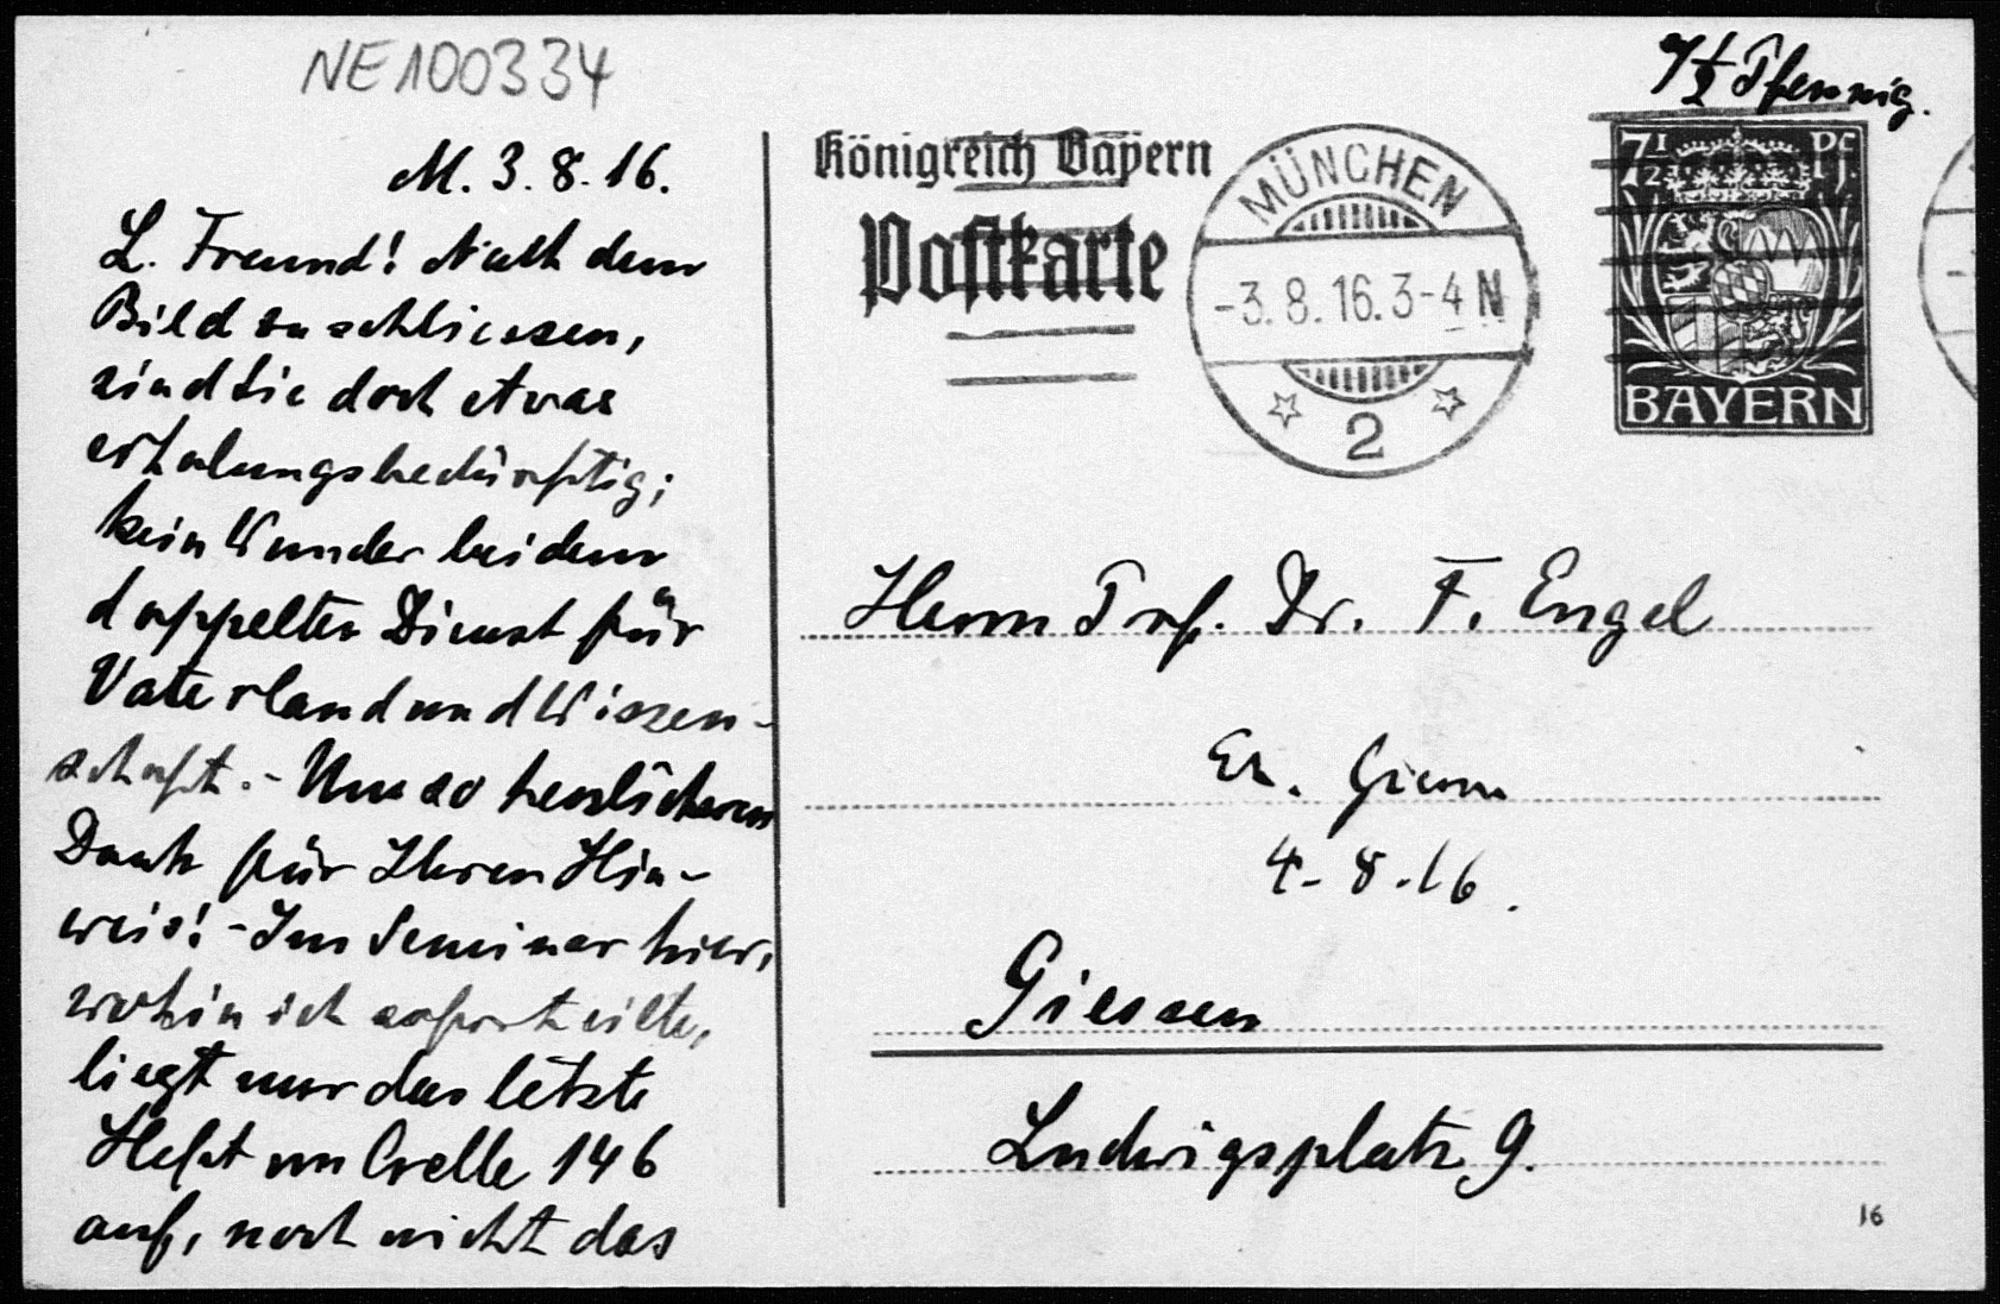 NE100334
M. 3.8.16.
L. Freund! Nach dem
Bild zu schliessen,
sind Sie doch etwas
erholungsbedürftig;
kein Wunder bei dem
doppelten Dienst für
Vaterland und Wissen-
schaft. - Um so herzlicheren
Dank für Ihren Hin-
weis! - Im Seminar hier,
wohin ich sofort eilte,
liegt nur das letzte
Heft von Crelle 146
auf, noch nicht das
7½ Pfennig.
Königreich Bayern
Postkarte
MÜNCHEN
-3.8.16.3-4 N
2
7½ Pf.
BAYERN
Herrn Prof. Dr. F. Engel
Gießen
4-8.16.
Giessen
Ludwigsplatz 9.
16